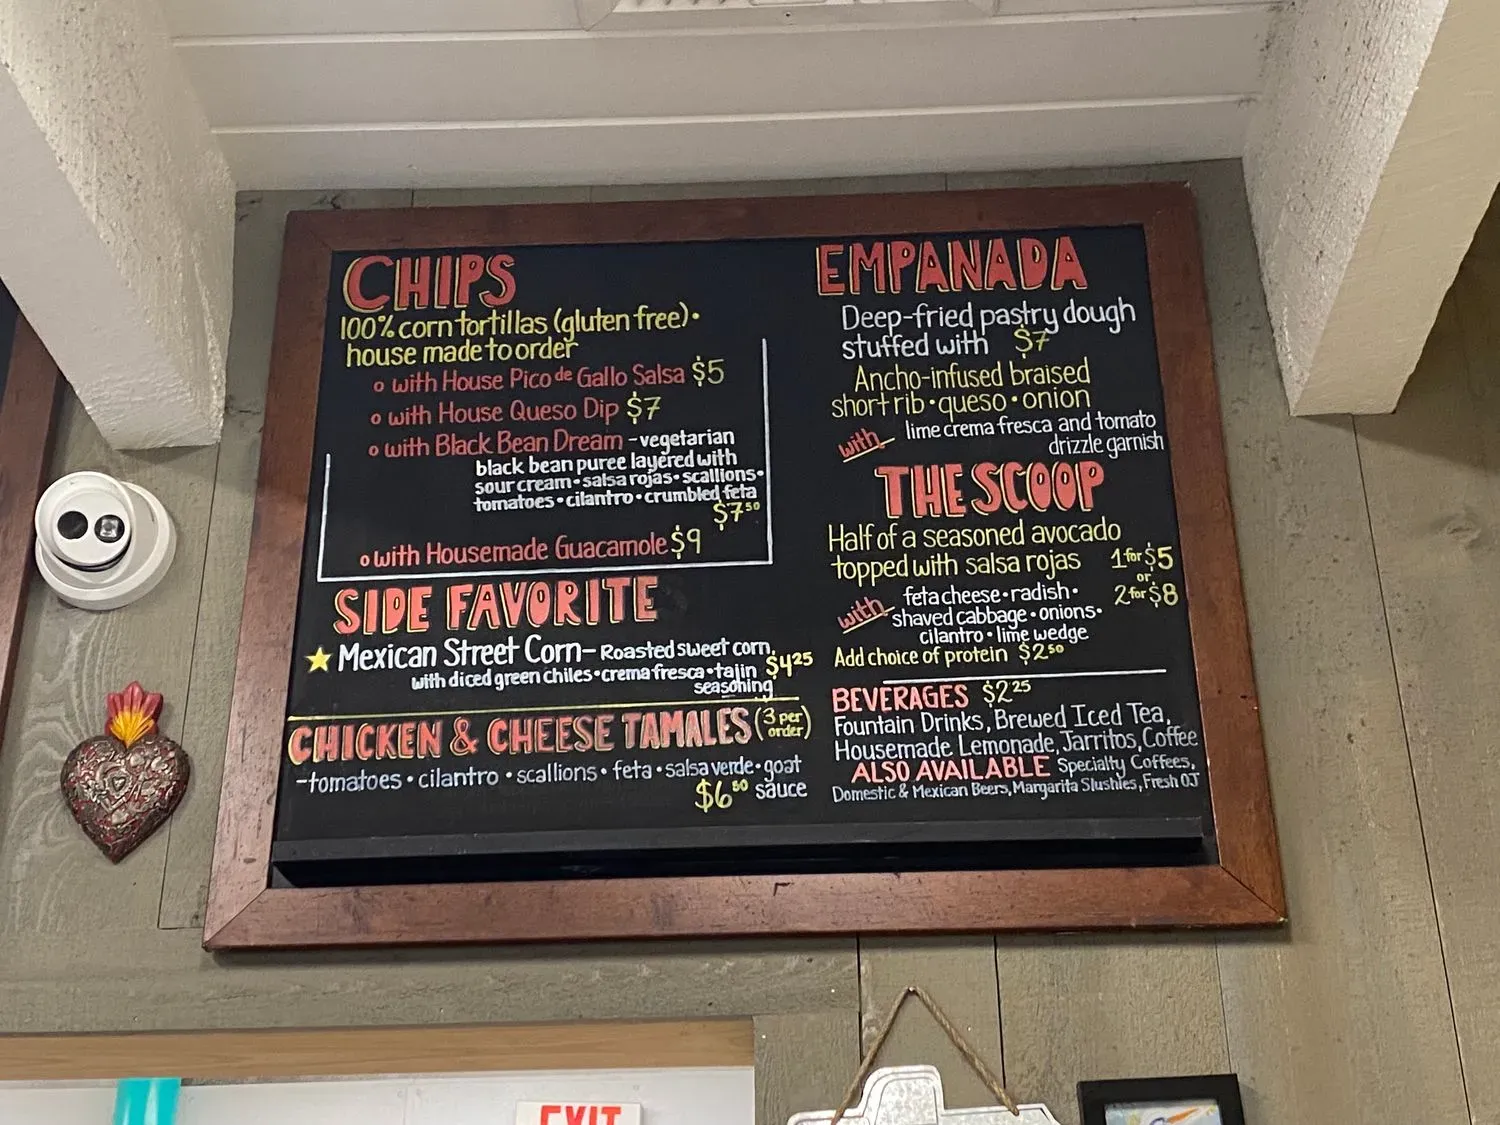 CHIPS
100% corn tortillas (gluten free) •
house made to order
o with House Pico de Gallo Salsa $5
o with House Queso Dip $7
o with Black Bean Dream - vegetarian
black bean puree layered with
sour cream • salsa rojas • scallions •
tomatoes • cilantro • crumbled feta
$7⁵⁰
o with Housemade Guacamole $9
SIDE FAVORITE
Mexican Street Corn - Roasted sweet corn,
with diced green chiles • crema fresca • tajin $4²⁵
seasoning
CHICKEN & CHEESE TAMALES (3 per order)
- tomatoes • cilantro • scallions • feta • salsa verde • goat
$6⁵⁰ sauce
EMPANADA
Deep-fried pastry dough
stuffed with $7
Ancho-infused braised
short rib • queso • onion
with lime crema fresca and tomato
drizzle garnish
THE SCOOP
Half of a seasoned avocado
topped with salsa rojas 1 for $5
or
2 for $8
with feta cheese • radish •
shaved cabbage • onions •
cilantro • lime wedge
Add choice of protein $2⁵⁰
BEVERAGES $2²⁵
Fountain Drinks, Brewed Iced Tea,
Housemade Lemonade, Jarritos, Coffee
ALSO AVAILABLE Specialty Coffees,
Domestic & Mexican Beers, Margarita Slushies, Fresh OJ
EXIT